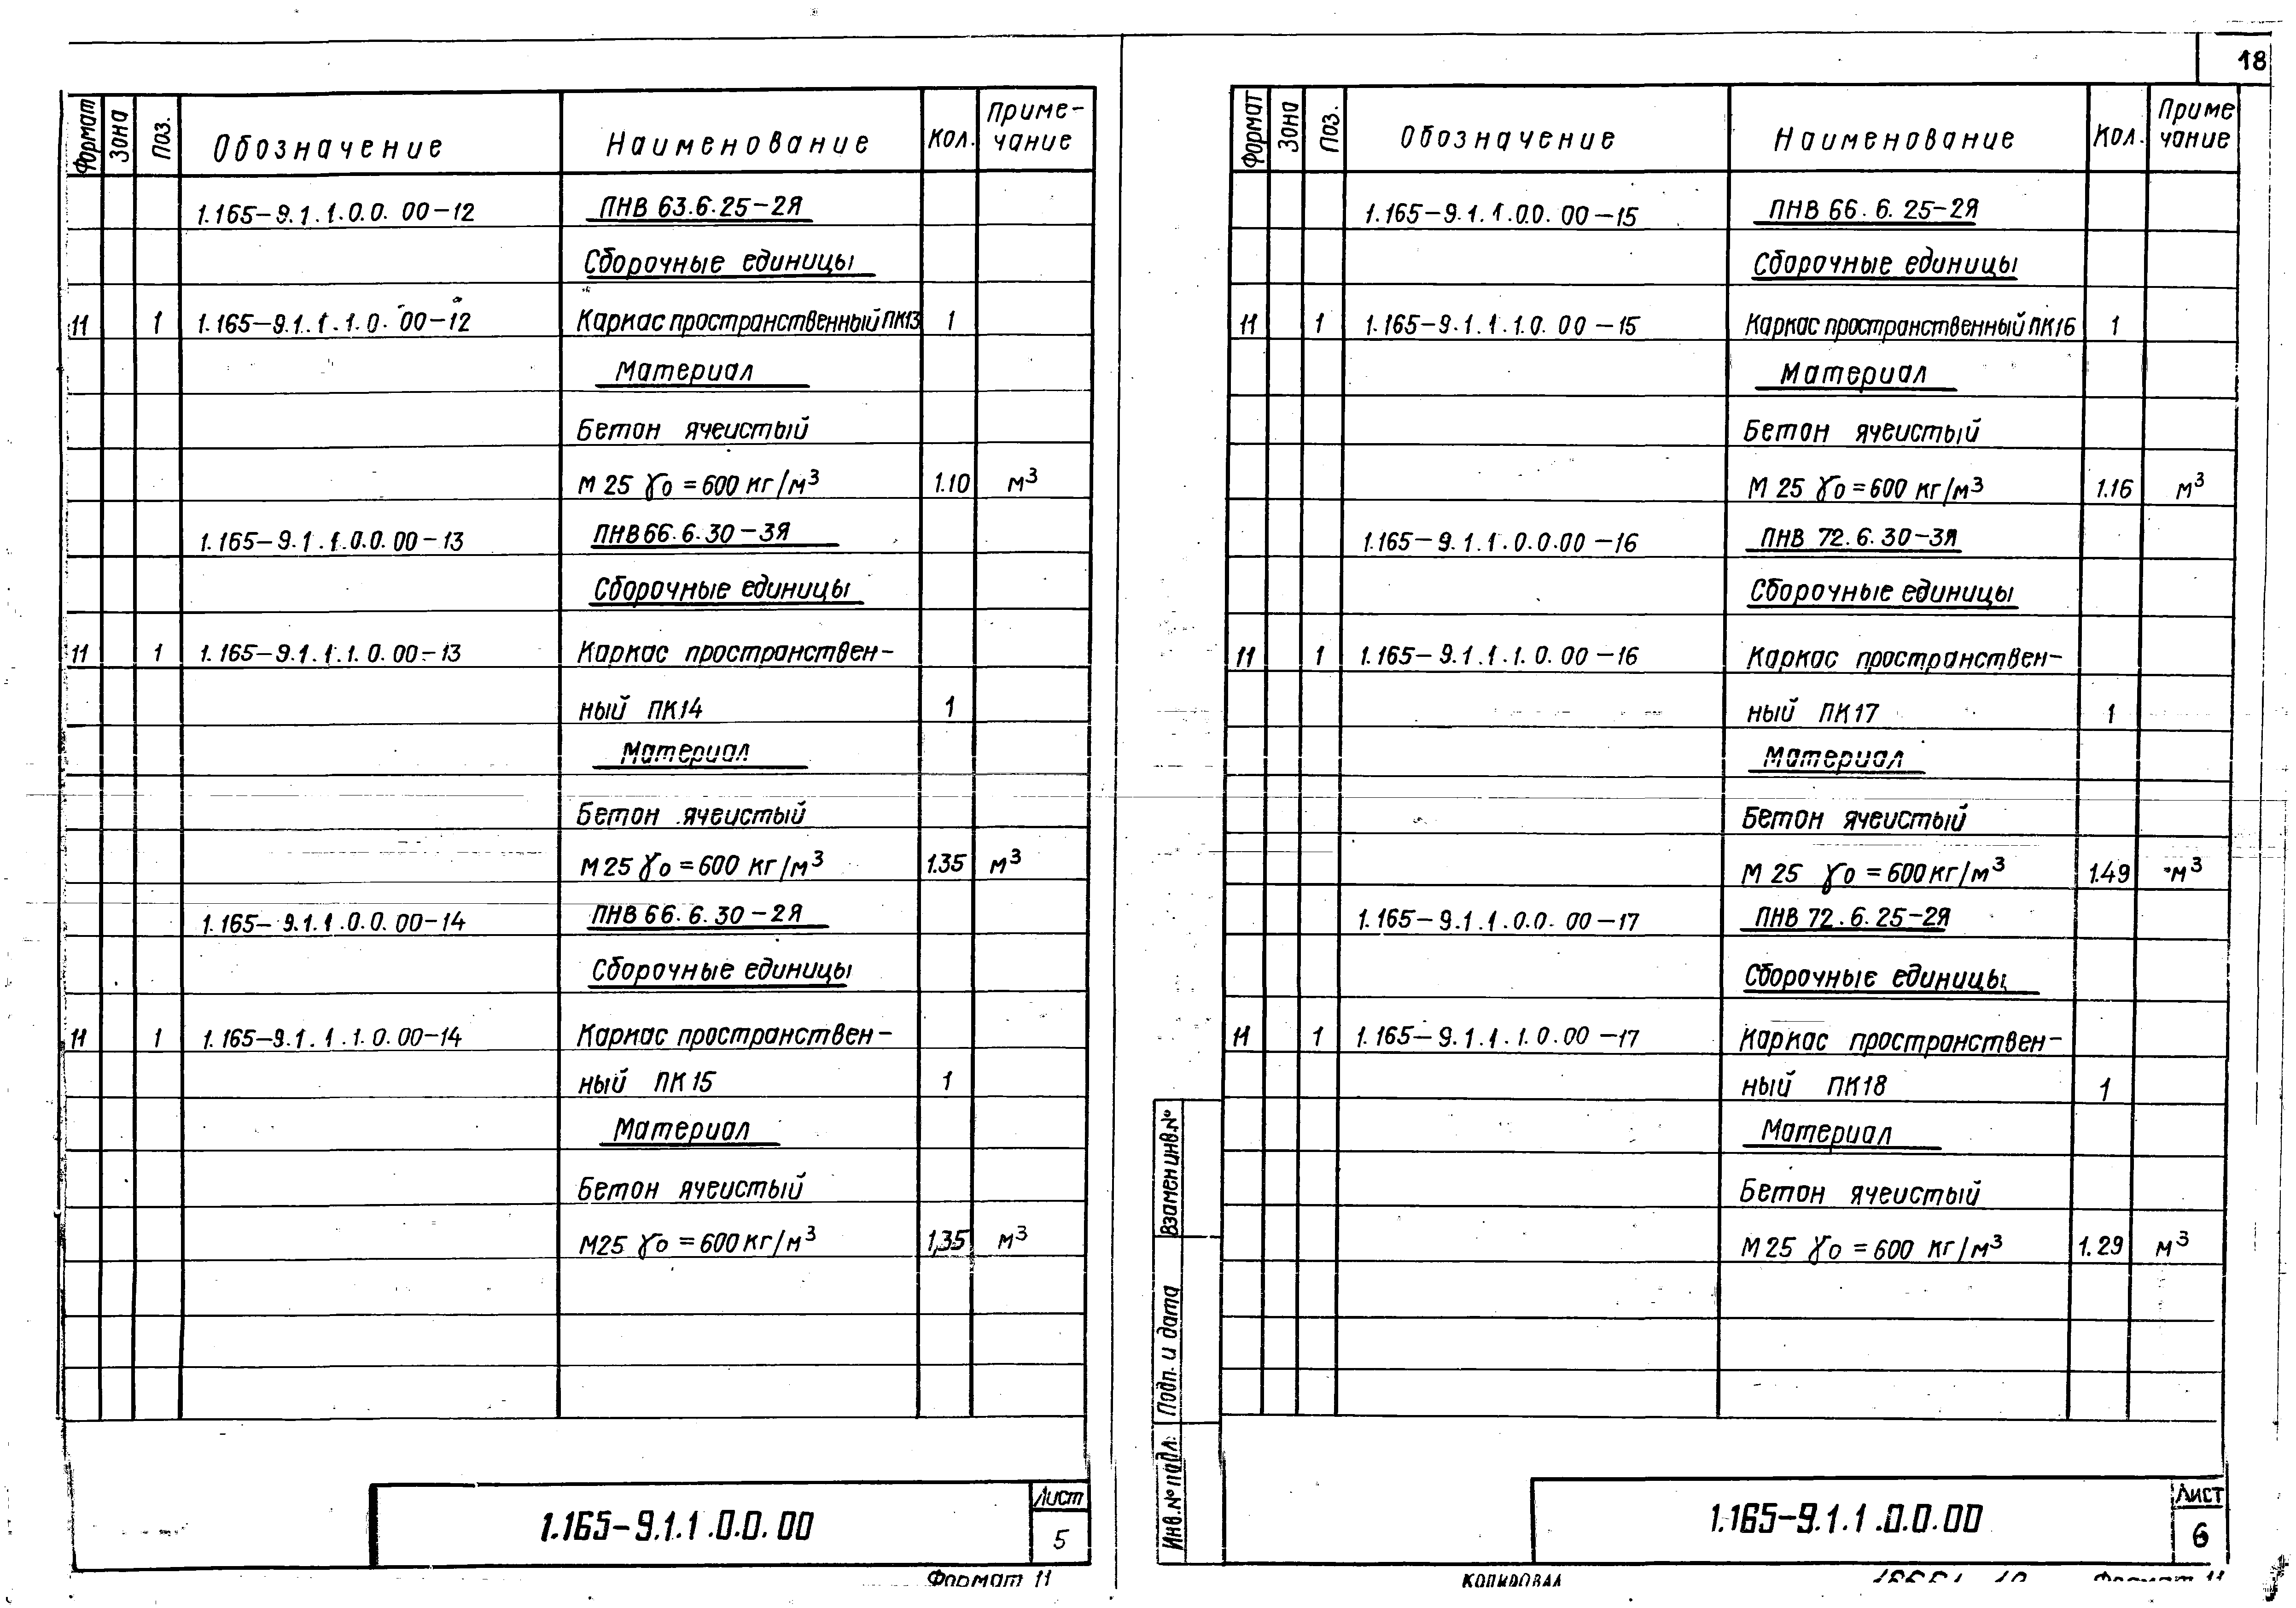 18
Формат Зона Поз. Обозначение Наименование Кол. Приме-
чание
1.165-9.1.1.0.0.00-12 ПНВ 63.6.25-2Я
Сборочные единицы
11 1 1.165-9.1.1.1.0.00-12 Каркас пространственный ПК13 1
Материал
Бетон ячеистый
М 25 γo = 600 кг/м³ 1.10 м³
1.165-9.1.1.0.0.00-13 ПНВ 66.6.30-3Я
Сборочные единицы
11 1 1.165-9.1.1.1.0.00-13 Каркас пространствен-
ный ПК14 1
Материал
Бетон ячеистый
М 25 γo = 600 кг/м³ 1.35 м³
1.165-9.1.1.0.0.00-14 ПНВ 66.6.30-2Я
Сборочные единицы
11 1 1.165-9.1.1.1.0.00-14 Каркас пространствен-
ный ПК15 1
Материал
Бетон ячеистый
М25 γo = 600 кг/м³ 1,35 м³
1.165-9.1.1.0.0.00
Лист
5
Формат 11
Формат Зона Поз. Обозначение Наименование Кол. Приме
чание
1.165-9.1.1.0.0.00-15 ПНВ 66.6.25-2Я
Сборочные единицы
11 1 1.165-9.1.1.1.0.00-15 Каркас пространственный ПК16 1
Материал
Бетон ячеистый
М 25 γo = 600 кг/м³ 1.16 м³
1.165-9.1.1.0.0.00-16 ПНВ 72.6.30-3Я
Сборочные единицы
11 1 1.165-9.1.1.1.0.00-16 Каркас пространствен-
ный ПК17 1
Материал
Бетон ячеистый
М 25 γo = 600 кг/м³ 1.49 м³
1.165-9.1.1.0.0.00-17 ПНВ 72.6.25-2Я
Сборочные единицы
11 1 1.165-9.1.1.1.0.00-17 Каркас пространствен-
ный ПК18 1
Материал
Бетон ячеистый
М 25 γo = 600 кг/м³ 1.29 м³
Взамен инв.№
Подп. и дата
Инв.№ подл.
1.165-9.1.1.0.0.00
Лист
6
Копировал
Формат 11